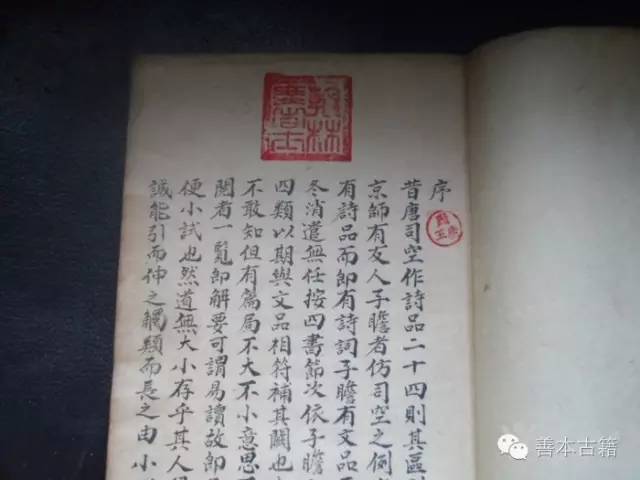 序
昔唐司空作詩品二十四則其區別
京師有友人子瞻者仿司空之例
有詩品而即有詩詞子瞻有文品
冬消遣無任按四書節次依子瞻
四類以期與文品相符補其闕也
不敢知但有篇局不大不小意思
閱者一覧即解要可謂易讀故即
便小試也然道無大小存乎其人
誠能引而伸之觸類而長之由小
善本古籍